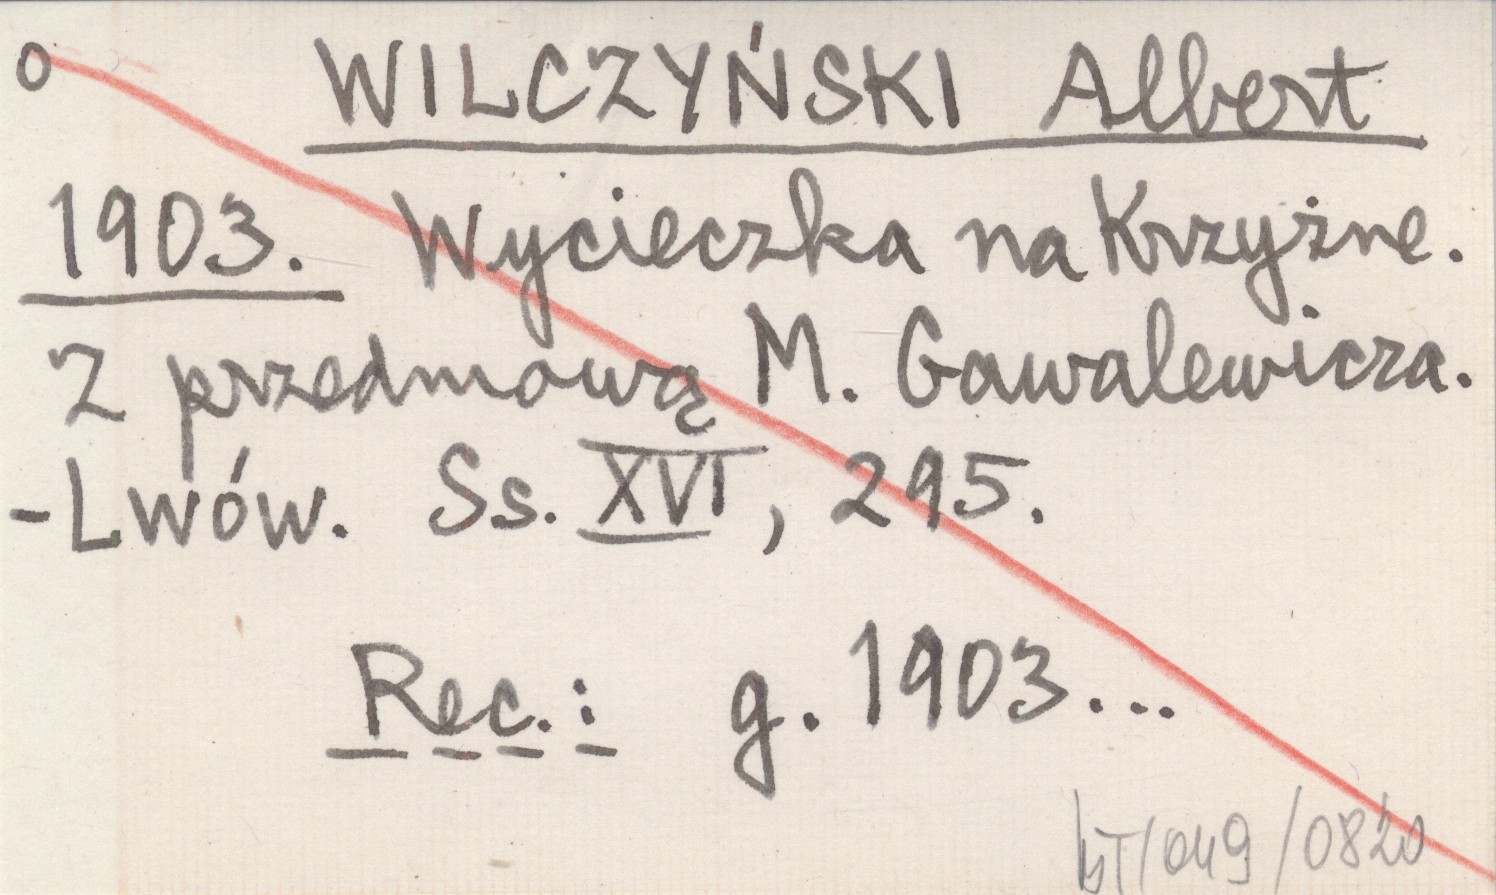 o WILCZYŃSKI Albert
1903. Wycieczka na Krzyżne.
Z przedmową M. Gawalewicza.
-Lwów. Ss. XVI, 295.
Rec.: g. 1903...
/049/0820